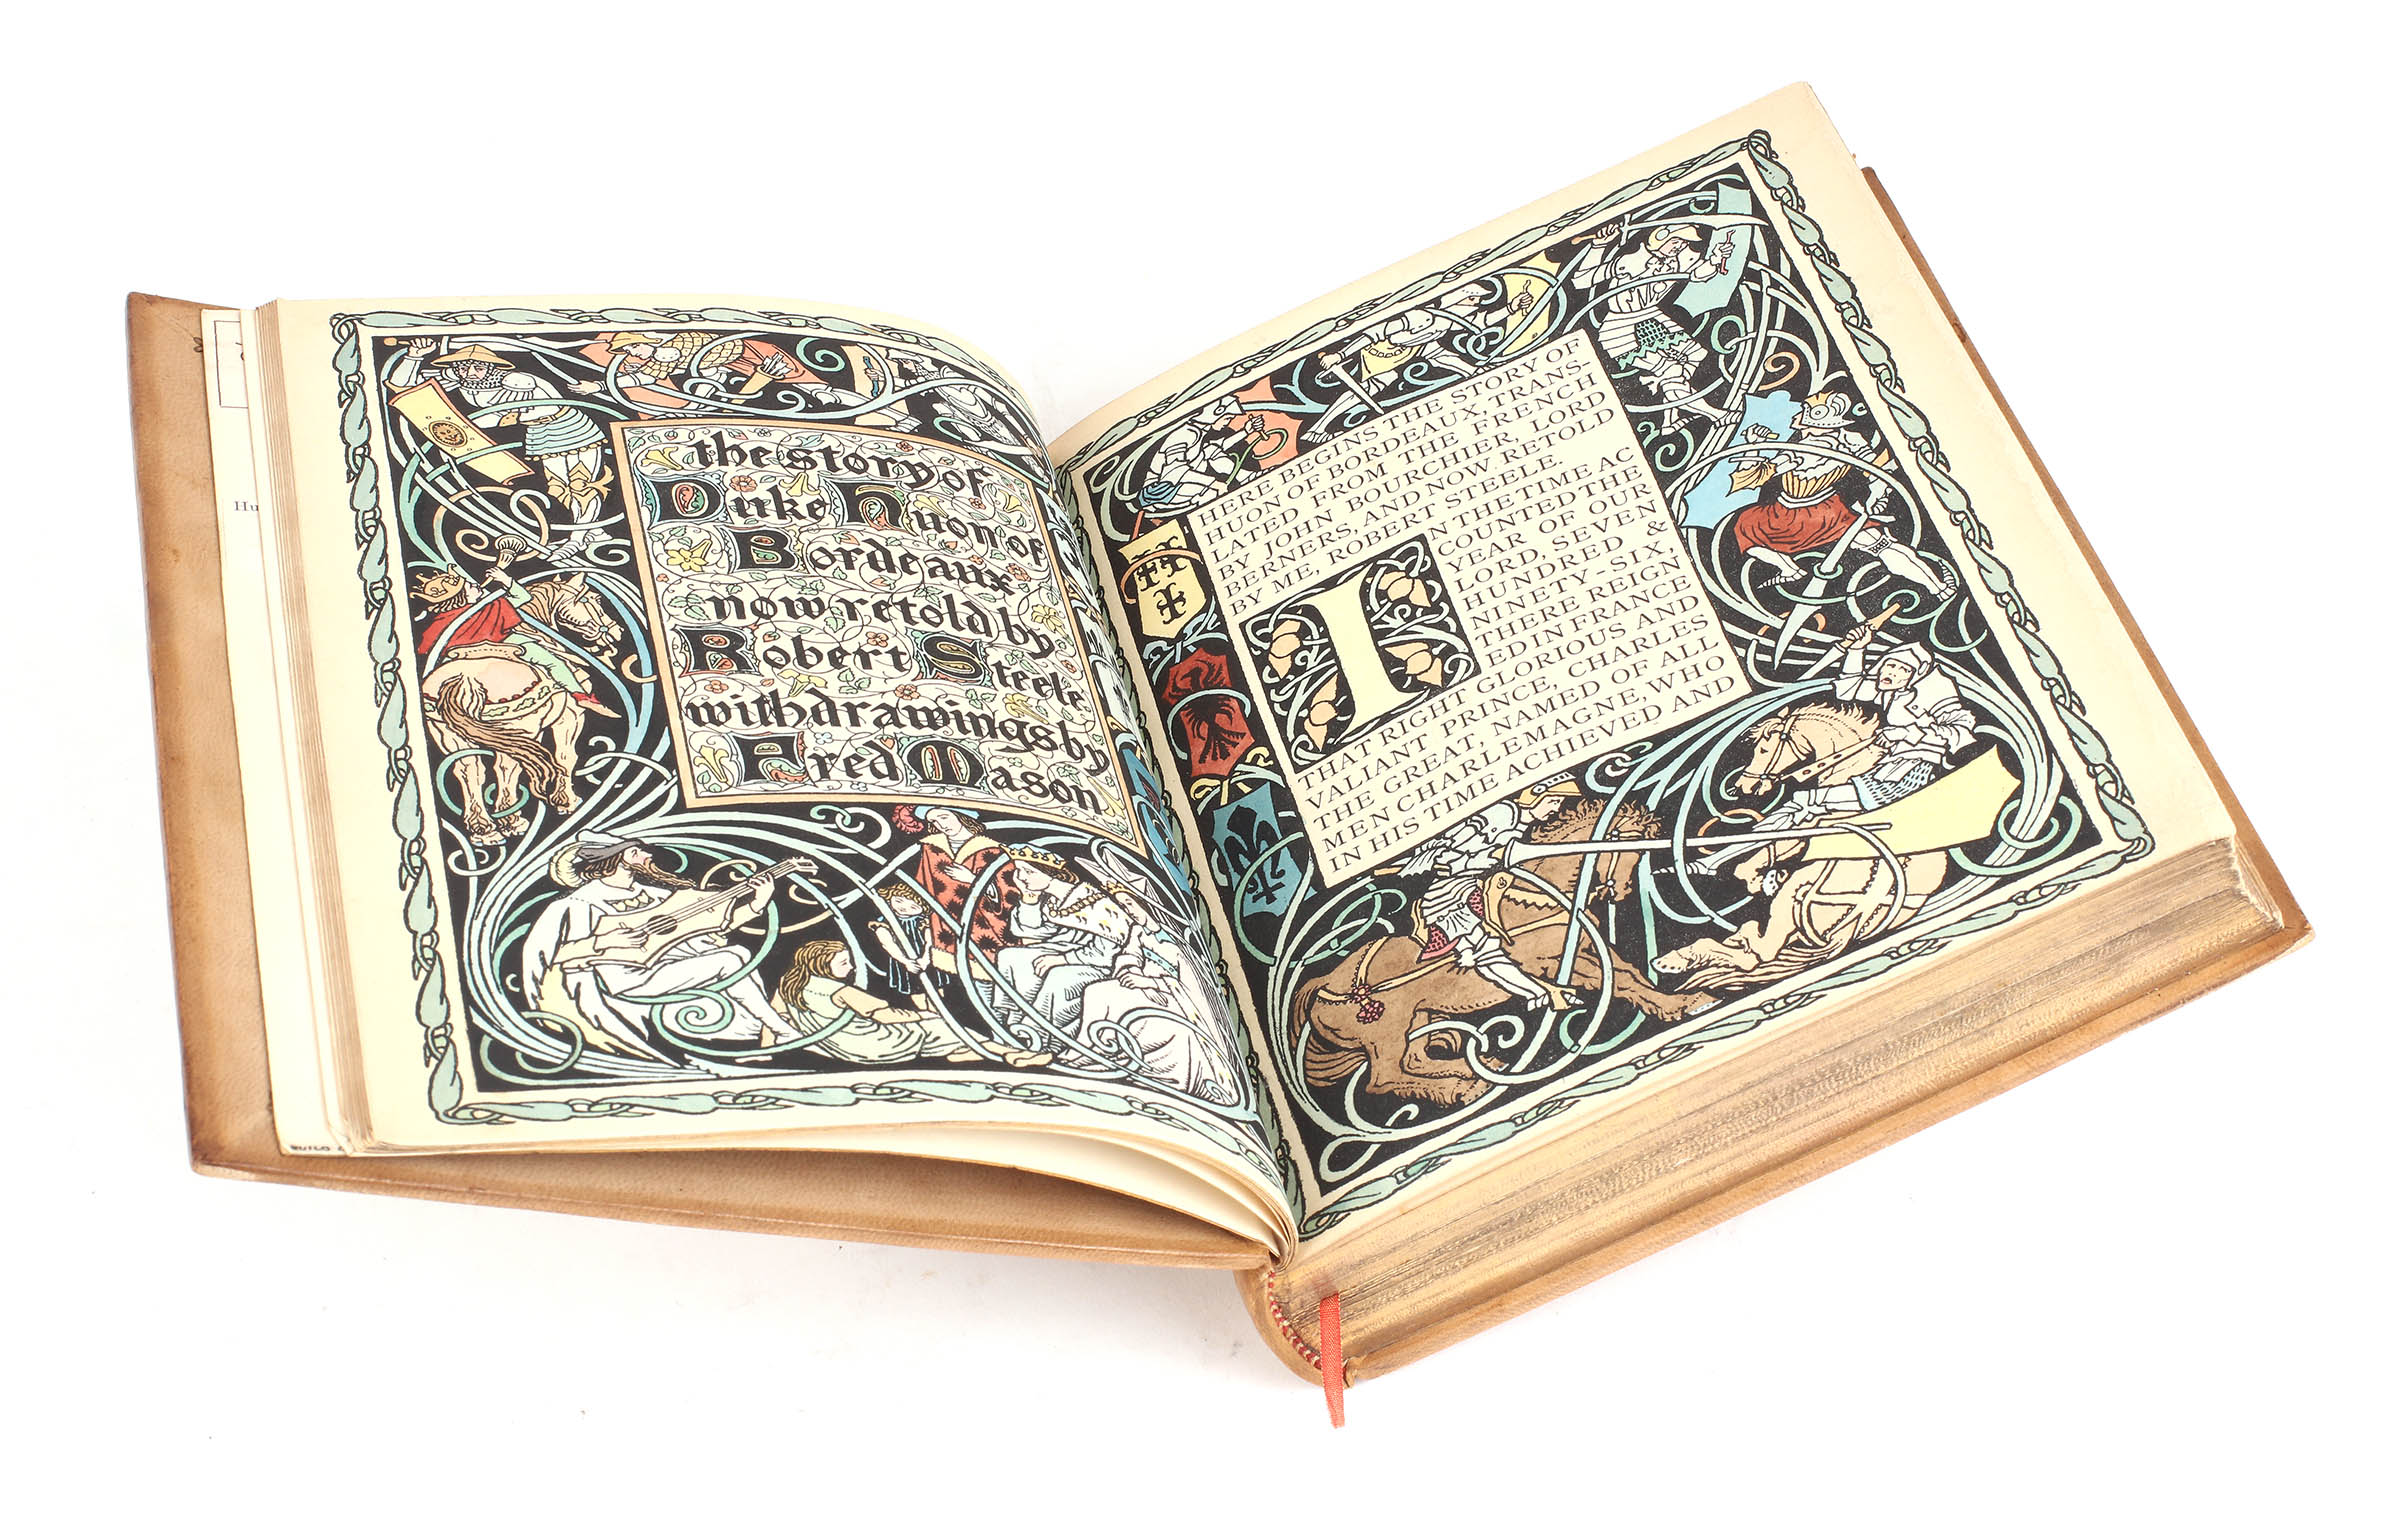 Hu
the story of
Duke Huon of
Bordeaux
now retold by
Robert Steele
with drawings by
Fred Mason
HERE BEGINS THE STORY OF
HUON OF BORDEAUX, TRANS-
LATED FROM THE FRENCH
BY JOHN BOURCHIER, LORD
BERNERS, AND NOW RETOLD
BY ME, ROBERT STEELE.
IN THE TIME AC
COUNTED THE
YEAR OF OUR
LORD, SEVEN
HUNDRED &
NINETY SIX,
THERE REIGN
ED IN FRANCE
THAT RIGHT GLORIOUS AND
VALIANT PRINCE, CHARLES
THE GREAT, NAMED OF ALL
MEN CHARLEMAGNE, WHO
IN HIS TIME ACHIEVED AND